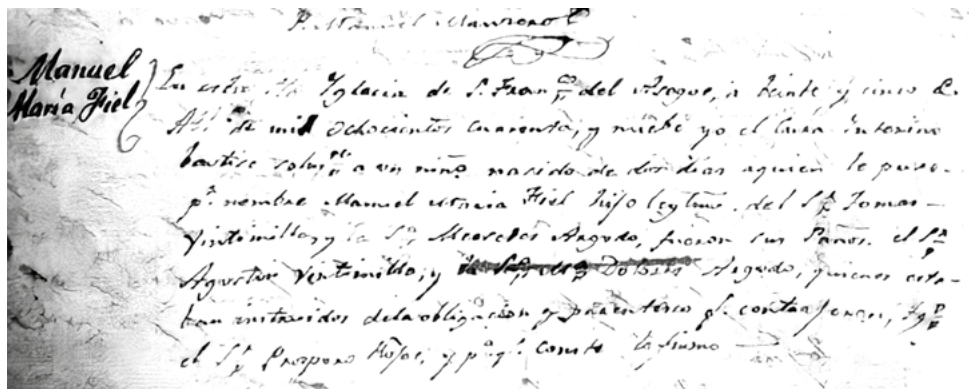 P. Manuel
Manuel
María Fiel
En esta Sta Yglecia de S. Franco del Asogue, a veinte y cinco de
Abl de mill ochocientos cuarenta, y nuebe yo el Cura interino
bautisé solmte a un niño nacido de dos días aquien le puse
pr. nombre Manuel Maria Fiel hijo legtmo. del Sr Tomas
Vintimilla, y la Sra Mercedes Argudo, fueron sus Panos. el Sr
Agustin Vintimilla, y Dolores Argudo, quienes esta-
ban instruidos dela obligacion y parentesco q. contrageron, Tgo
el Sr Prospero, y pa. q. conste lo firmo